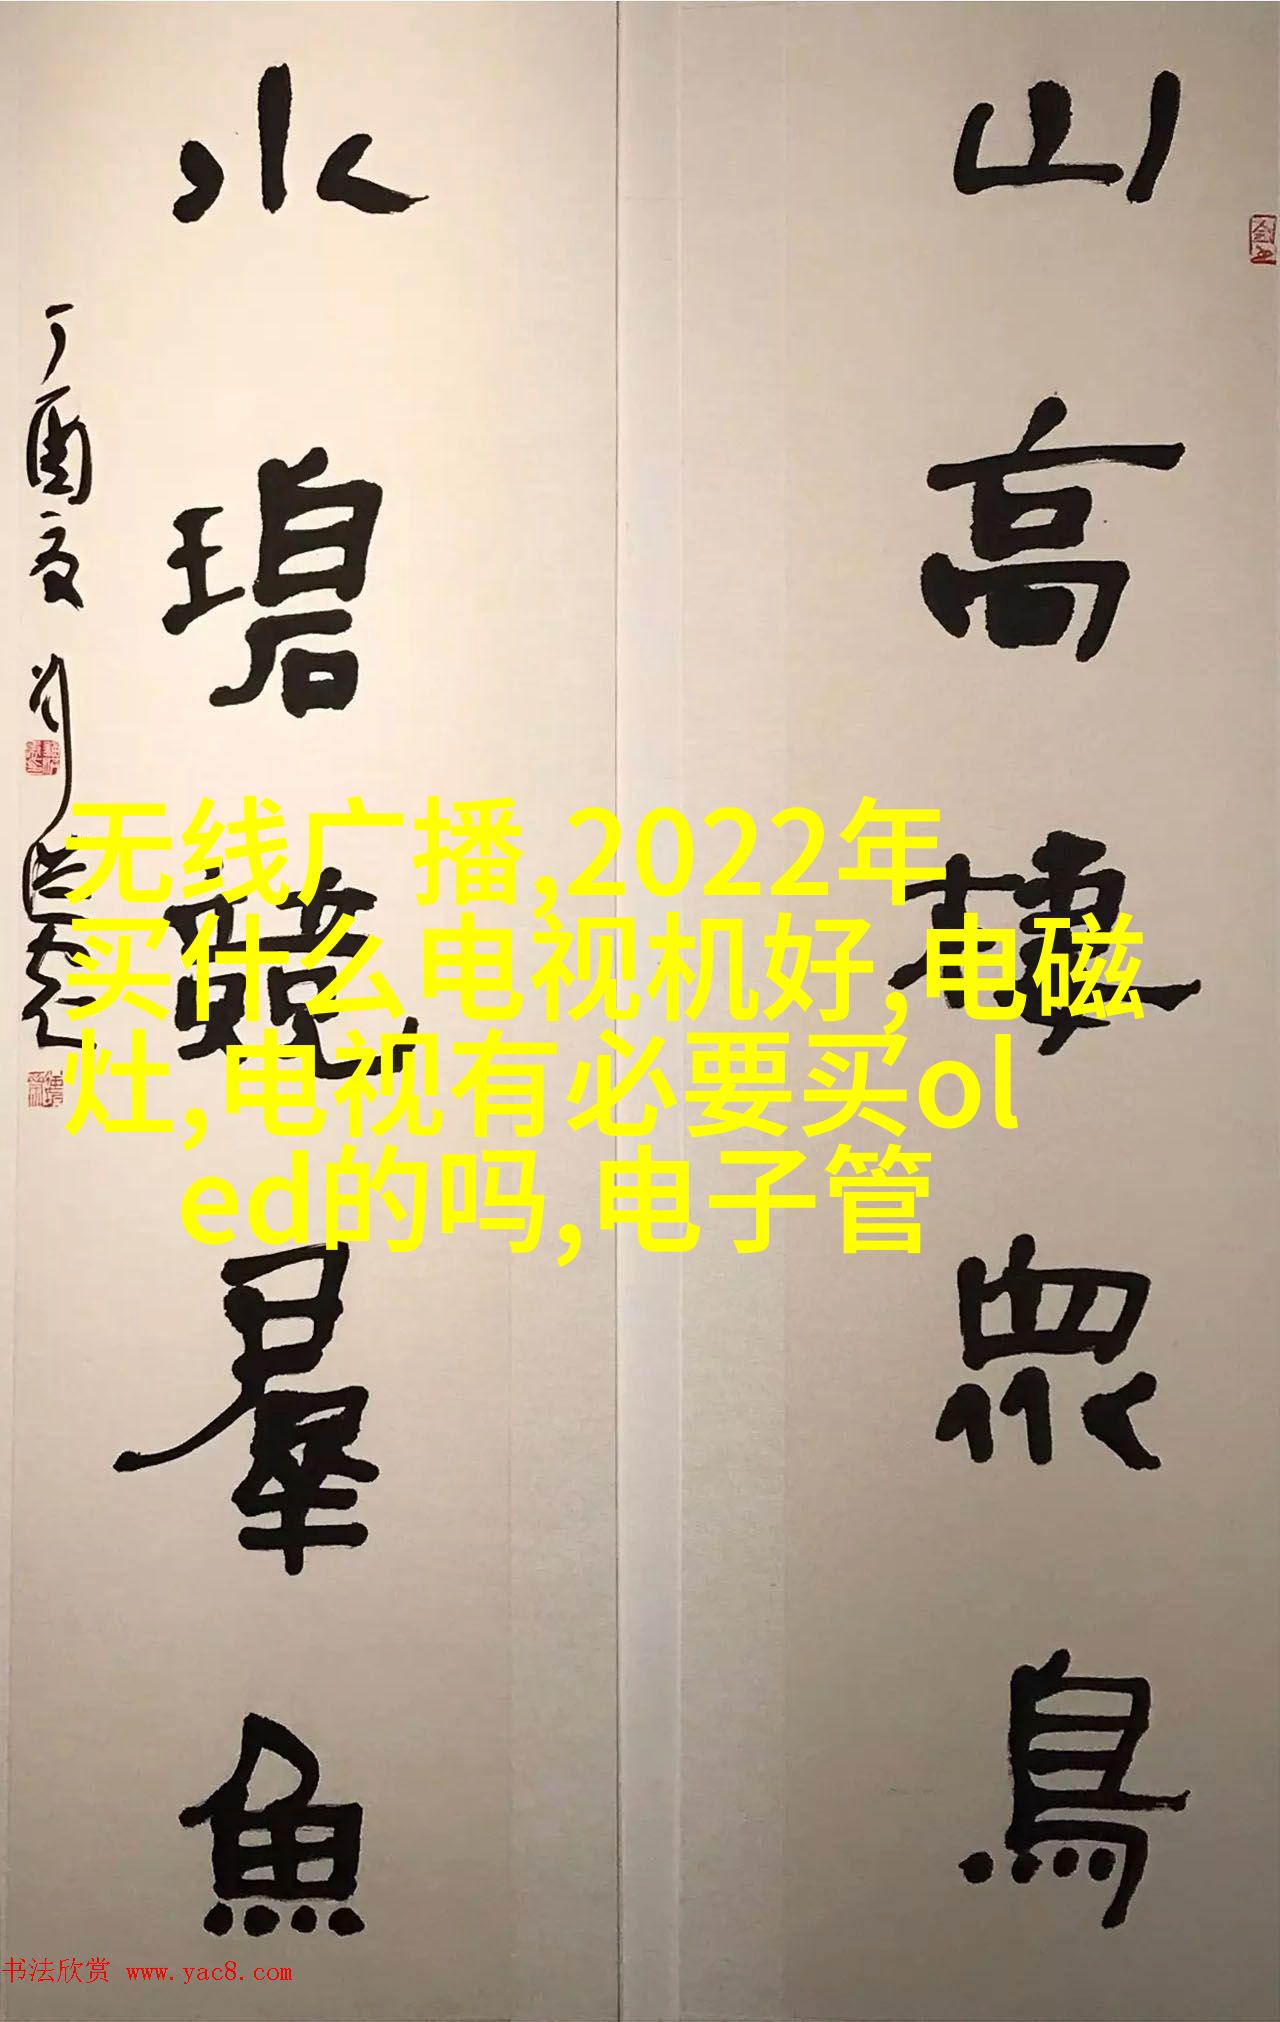 山高栖眾鳥
水碧競羣魚
丁酉夏
无线广播,2022年
买什么电视机好,电磁
灶,电视有必要买ol
ed的吗,电子管
书法欣赏 www.yac8.com